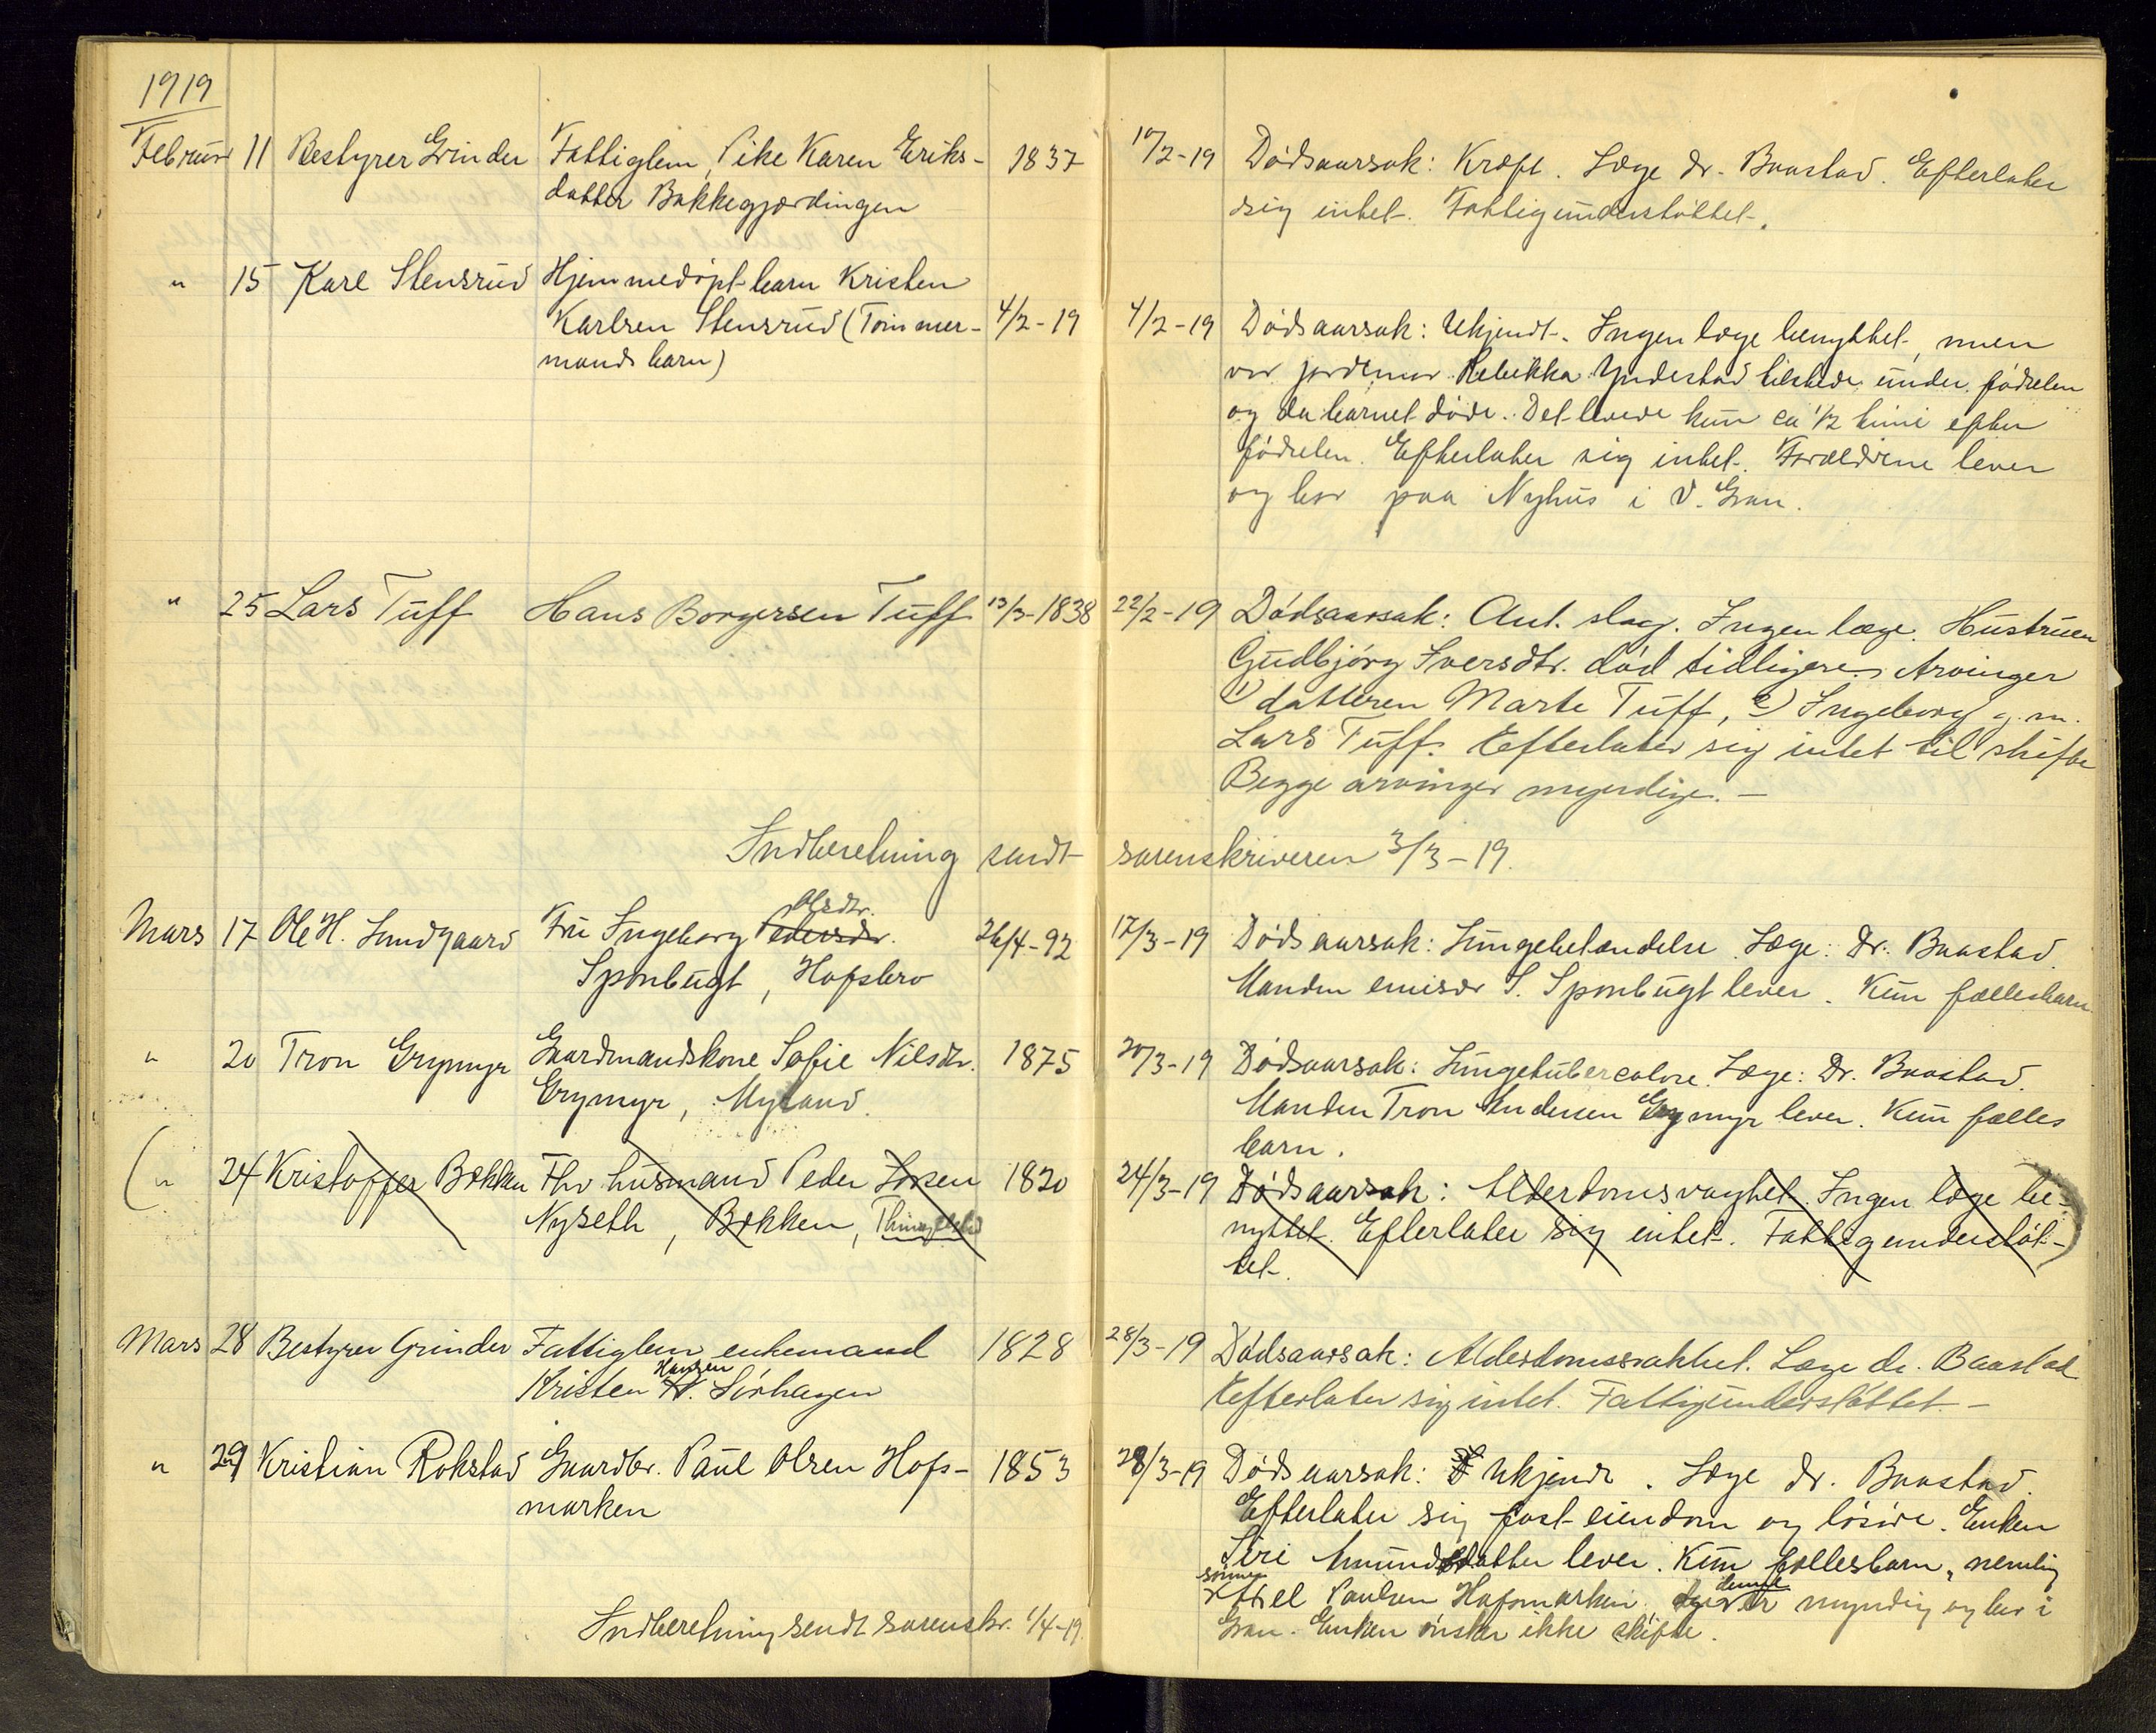 1919
Februar 11 Bestyrer Grinder Fattiglem, Pike Karen Eriks- 1837 10/2-19 Dødsaarsak: Kræft. Læge dr. Baastad. Efterlater
datter Bakkegjærdingen sig intet. Fattigunderstøttet.
" 15 Karl Stensrud Hjemmedøpt barn Kristen
Karlsen Stensrud (Tømmer- 4/2-19 4/2-19 Dødsaarsak: Ukjendt. Ingen læge benyttet, men
mands barn) var jordmor Rebekka Yndestad tilstede under fødselen
og da barnet døde. Det levede kun ca 1/2 time efter
fødselen. Efterlater sig intet. Forældrene lever
og bor paa Nyhus i V. Gran.
" 25 Lars Tuff Hans Borgersen Tuff 13/3-1838 22/2-19 Dødsaarsak: Ant. slag. Ingen læge. Hustruen
Gudbjørg Iversdtr. død tidligere. Arvinger
1) datteren Marte Tuff, 2) Ingeborg g.m.
Lars Tuff. Efterlater sig intet til skifte
Begge arvinger myndige. —
Indberetning sendt sorenskriveren 3/3-19.
Olsdtr.
Mars 17 Ole H. Lundgaard Fru Ingeborg Pedersdr. 26/4-92 17/3-19 Dødsaarsak: Lungebetændelse. Læge: Dr. Baastad.
Sponbugt, Hofsbro Manden emisær S. Sponbugt lever. Kun fællesbarn
" 20 Tron Grymyr Gaardmandskone Sofie Nilsdtr. 1875 20/3-19 Dødsaarsak: Lungetubercolose. Læge: Dr. Baastad.
Grymyr, Myland. Manden Tron Andersen Grymyr lever. Kun fælles
barn.
( " 24 Kristoffer Bækken Fhv husmand Peder 1820 24/3-19 Dødsaarsak: Alderdomsvaghet. Ingen læge be-
Nyseth, Bækken, nyttet. Efterlater sig intet. Fattigunderstøt- )
tet.
Mars 28 Bestyrer Grinder Fattiglem enkemand 1828 28/3-19 Dødsaarsak: Alderdomssvakhet. Læge dr. Baastad
Hansen
Kristen H. Sørhagen Efterlater sig intet. Fattigunderstøttet. —
" 29 Kristian Rokstad Gaardbr. Paul Olsen Hofs- 1853 28/3-19 Dødsaarsak: Ukjendt. Læge dr. Baastad.
marken Efterlater sig fast eiendom og løsøre. Enken
Siri Amundsdatter lever. Kun fællesbarn, nemlig
sønnen
Paulsen Hofsmarken. denne er myndig og bor i
Indberetning sendt sorenskr. 1/4-19. Gran. Enken ønsker ikke skifte.